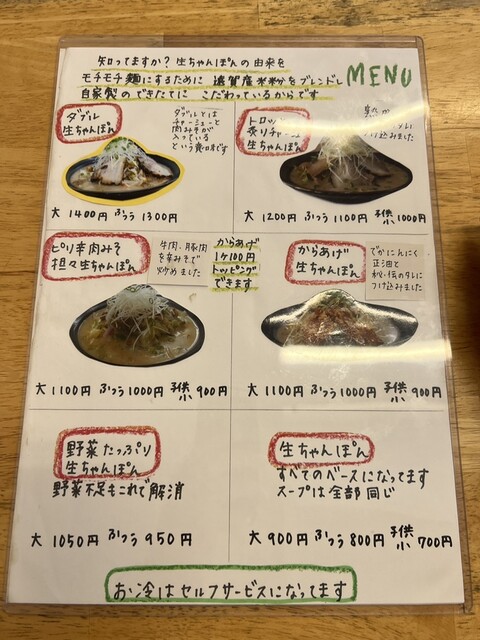 知ってますか？生ちゃんぽんの由来を
モチモチ麺にするために 遠賀産米粉をブレンドし
自家製のできたてに こだわっているからです
MENU
ダブル
生ちゃんぽん
ダブルとは
チャーシューと
肉みそが
入っている
という意味です
大 1400円 ふつう 1300円
トロッ
炙りチャーシュー
生ちゃんぽん
け込みました
大 1200円 ふつう 1100円 子供 小 1000円
ピリ辛肉みそ
担々生ちゃんぽん
牛肉、豚肉
を辛みそで
炒めました
からあげ
1ケ100円
トッピング
できます
大 1100円 ふつう 1000円 子供 小 900円
からあげ
生ちゃんぽん
でかにんにく
正油と
秘伝のタレに
つけ込みました
大 1100円 ふつう 1000円 子供 小 900円
野菜たっぷり
生ちゃんぽん
野菜不足もこれで解消
大 1050円 ふつう 950円
生ちゃんぽん
すべてのベースになってます
スープは全部同じ
大 900円 ふつう 800円 子供 小 700円
お冷はセルフサービスになってます